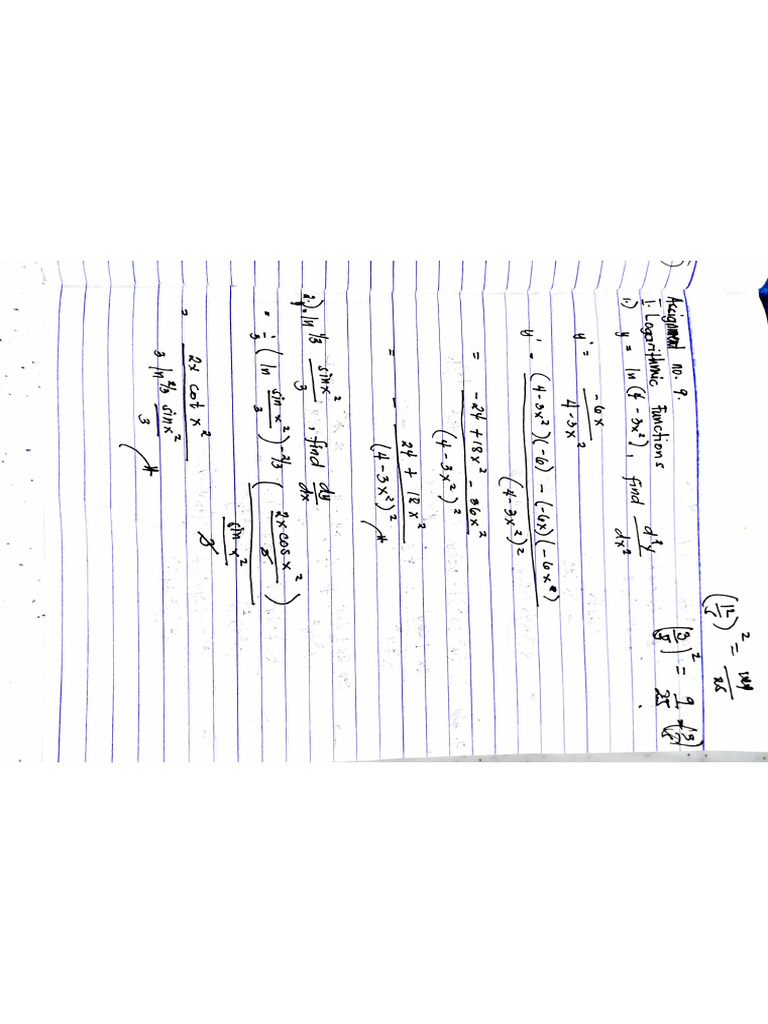 Assignment no. 9.
I. Logarithmic Functions
1.) y = ln(4-3x²), find d²y/dx²
y' = -6x/4-3x²
y' = (4-3x²)(-6) - (-6x)(-6x²)/(4-3x²)²
= -24+18x² - 36x²/(4-3x²)²
= - 24 + 18x²/(4-3x²)²
2.) y = ln^1/3 sinx²/3, find dy/dx
= 1/3 (ln sinx²/3)^-2/3 (2x cosx²/3 / sin x²/3)
= 2x cot x²/3 ln^2/3 sinx²/3
(3/5)² = 9/25